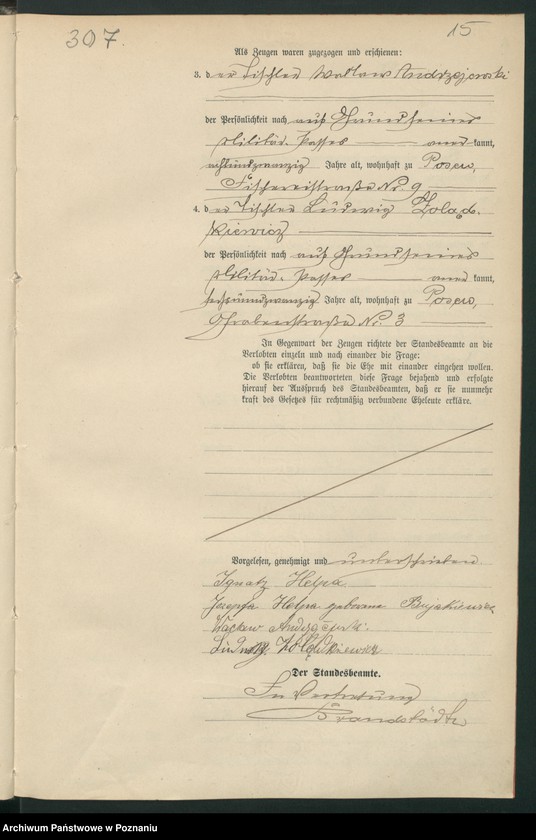 307.
15
Als Zeugen waren zugezogen und erschienen:
3. der Tischler Watlaw Andrzejewski
der Persönlichkeit nach auf Grund seines
Militär-Passes anerkannt,
achtundzwanzig Jahre alt, wohnhaft zu Posen,
Fischereistraße Nr. 9
4. der Tischler Ludwig Zolad-
kiewicz
der Persönlichkeit nach auf Grund seines
Militär-Passes anerkannt,
sechsundzwanzig Jahre alt, wohnhaft zu Posen,
Grabenstraße Nr. 3
In Gegenwart der Zeugen richtete der Standesbeamte an die
Verlobten einzeln und nach einander die Frage:
ob sie erklären, daß sie die Ehe mit einander eingehen wollen.
Die Verlobten beantworteten diese Frage bejahend und erfolgte
hierauf der Ausspruch des Standesbeamten, daß er sie nunmehr
kraft des Gesetzes für rechtmäßig verbundene Eheleute erkläre.
Vorgelesen, genehmigt und unterschrieben
Ignatz Helpa
Helpa geborene Bujakiewicz
Wacław Andrzejewski.
Ludwig Zołądkiewicz
Der Standesbeamte.
In Vertretung
Brandstädter
Archiwum Państwowe w Poznaniu